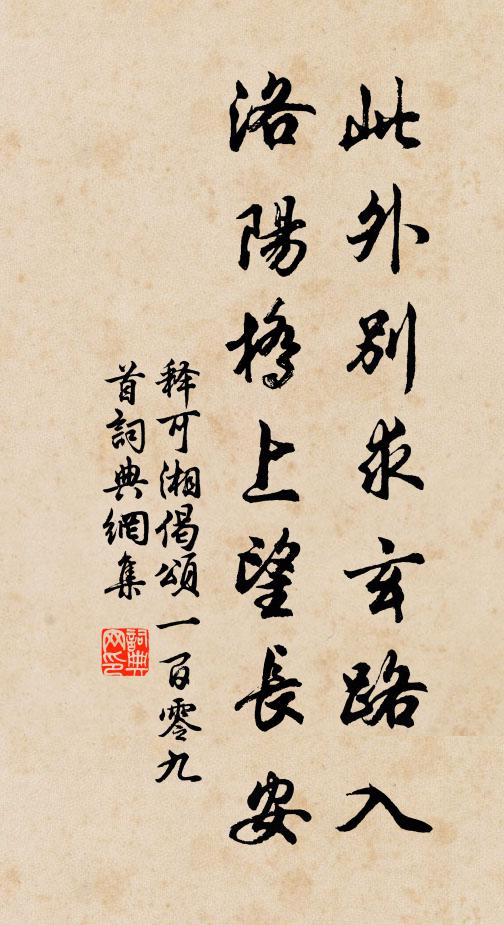 此外别求玄路入
洛陽橋上望長安
释可湘偈頌一百零九
首詞典網集
詞典
网印